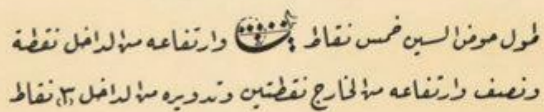 طول حوض السين خمس نقاط وارتفاعه من الداخل نقطة
ونصف وارتفاعه من الخارج نقطتين وتدويره من الداخل (٣) نقاط